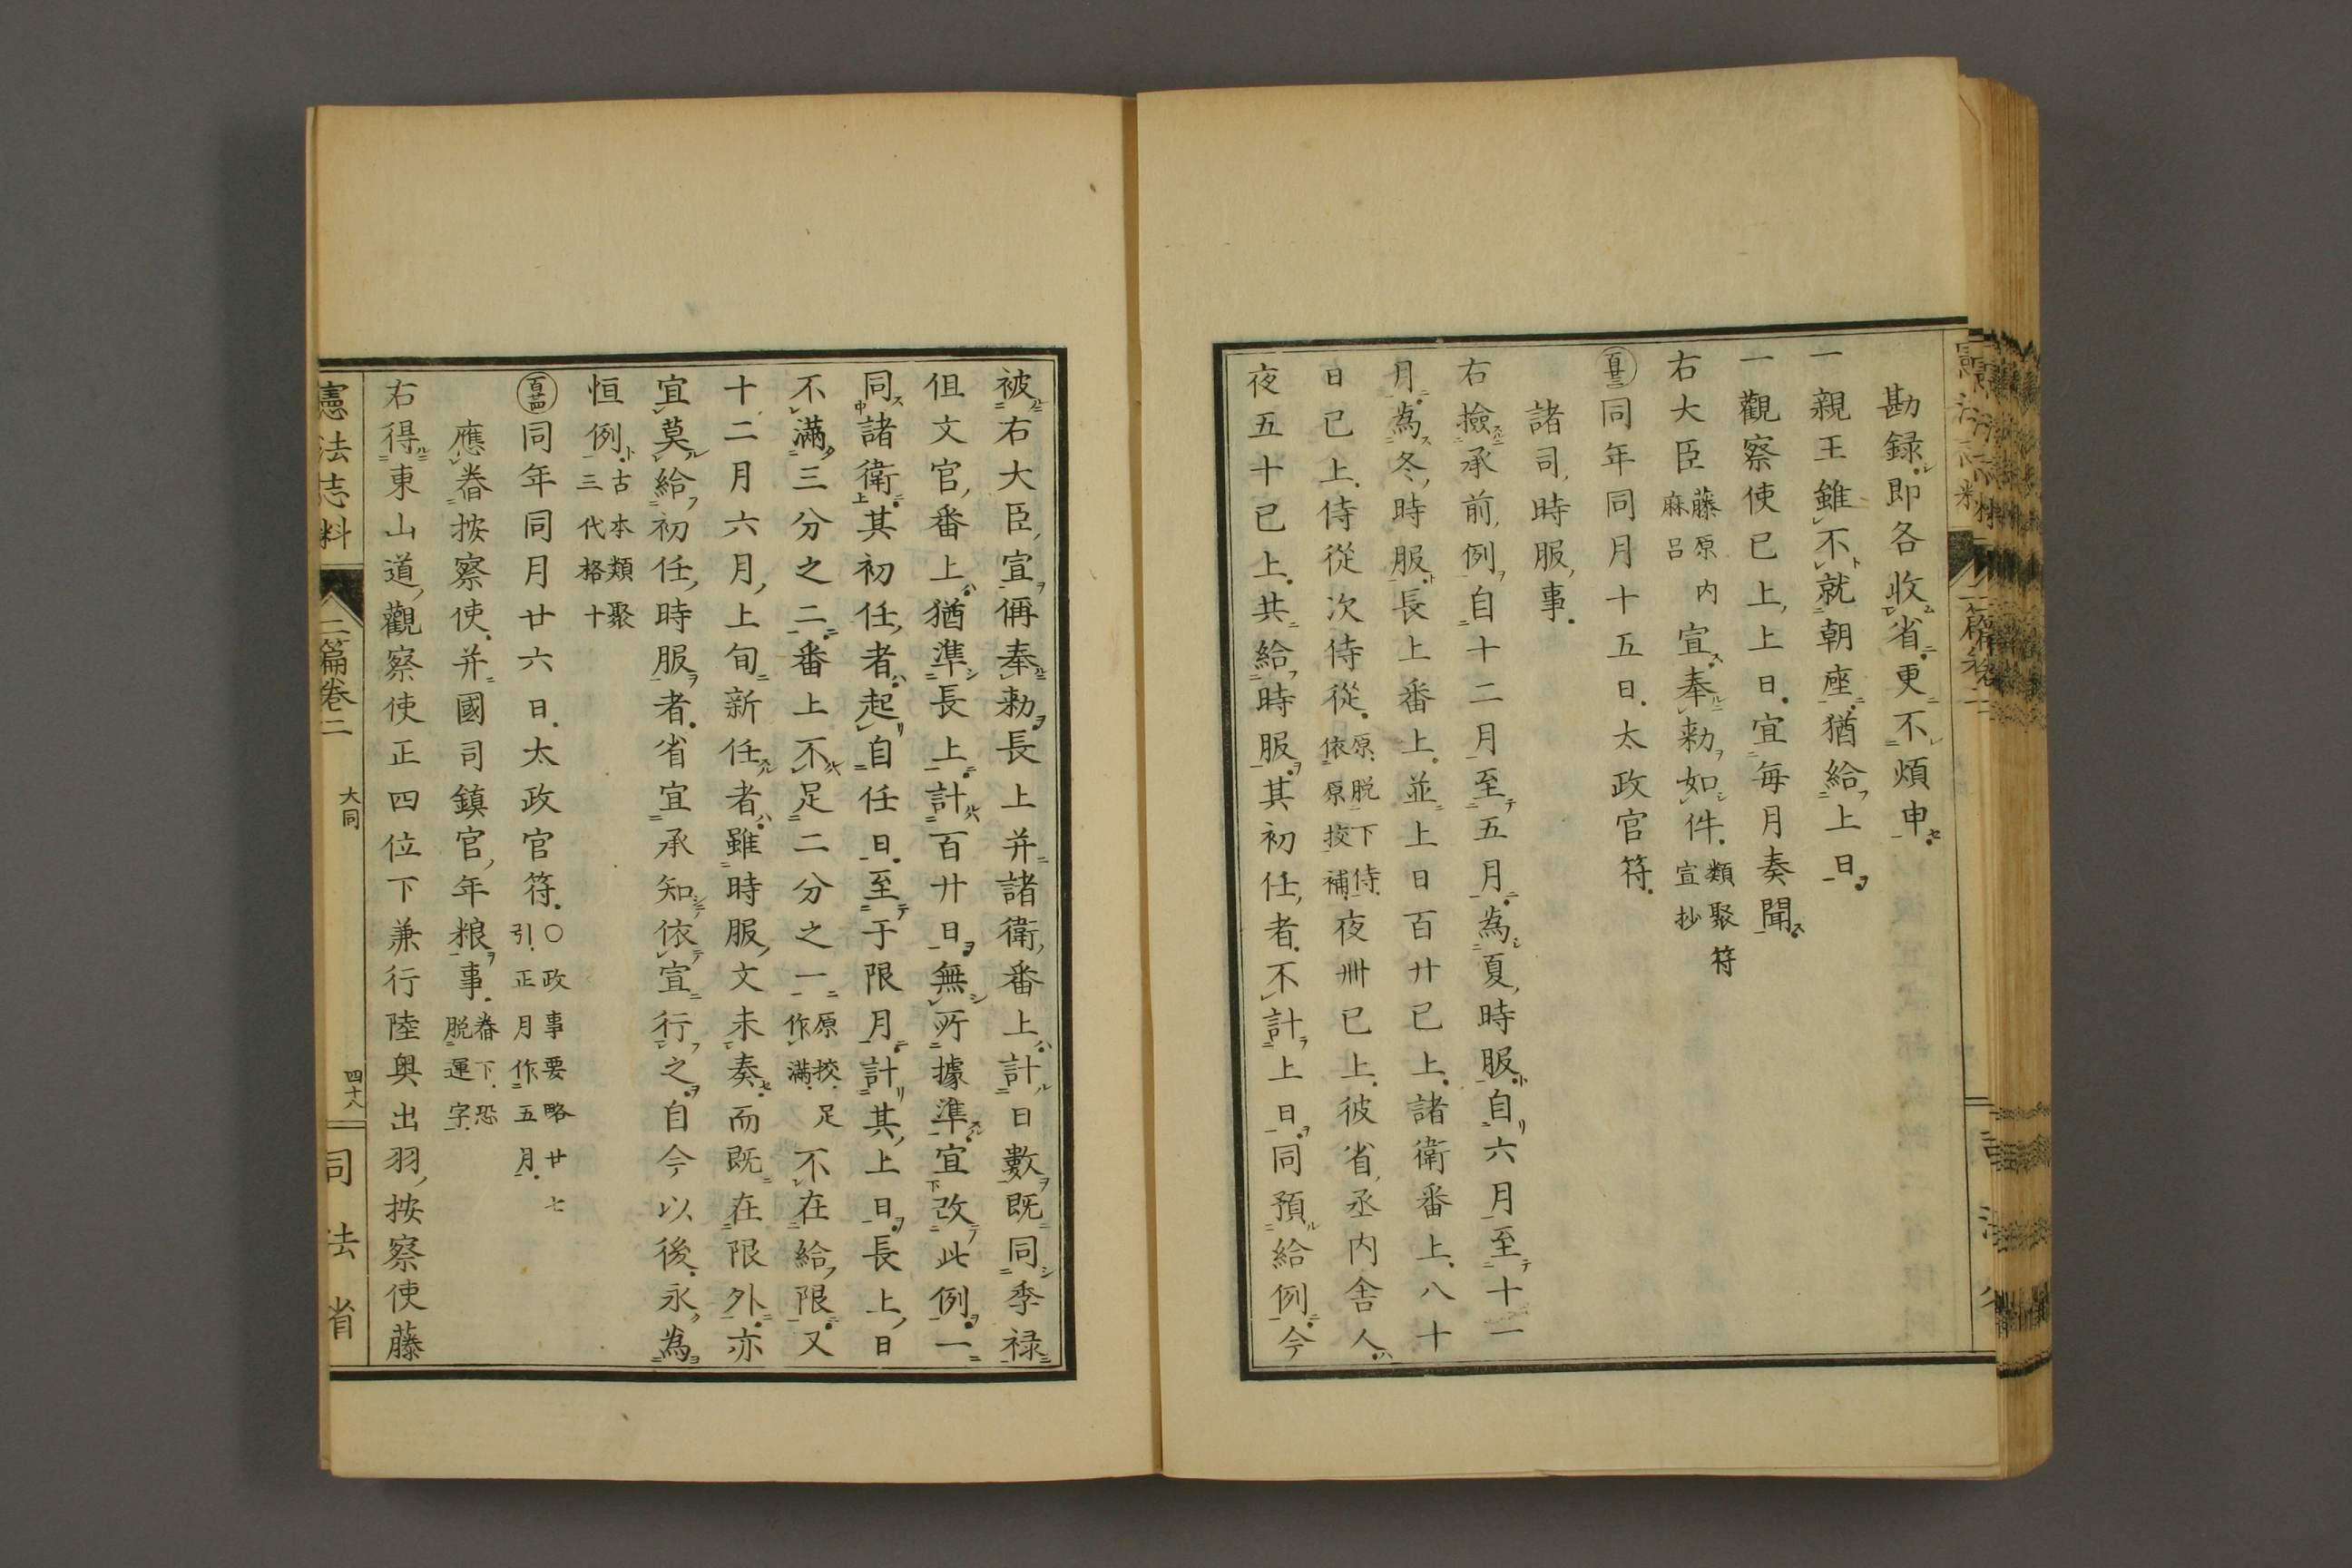 勘録即各收省更不煩申
一親王雖不就朝座猶給上日
一觀察使已上上日宜每月奏聞
右大臣藤原内麻呂宣奉勅如件類聚符宣抄
百廿三同年同月十五日太政官符
諸司時服事
右撿承前例自十二月至五月為夏時服自六月至十一
月為冬時服長上番上並上日百廿已上諸衛番上八十
日已上侍從次侍從原脱下侍依原挍補夜卌已上彼省丞内舍人
夜五十已上共給時服其初任者不計上日同預給例今
被右大臣宣偁奉勅長上并諸衛番上計日數既同季禄
但文官番上猶準長上計百廿日無所據準宜改此例一
同諸衛其初任者起自任日至于限月計其上日長上日
不滿三分之二番上不足二分之一原挍足作滿不在給限又
十二月六月上旬新任者雖時服文未奏而既在限外亦
宜莫給初任時服者省宜承知依宣行之自今以後永為
恒例古本類聚三代格十
百廿四同年同月廿六日太政官符○政事要略廿七引正月作五月
應舂按察使并國司鎮官年粮事舂下恐脱運字
右得東山道觀察使正四位下兼行陸奥出羽按察使藤
憲法志料
二篇卷二
大同
四十八
司法省